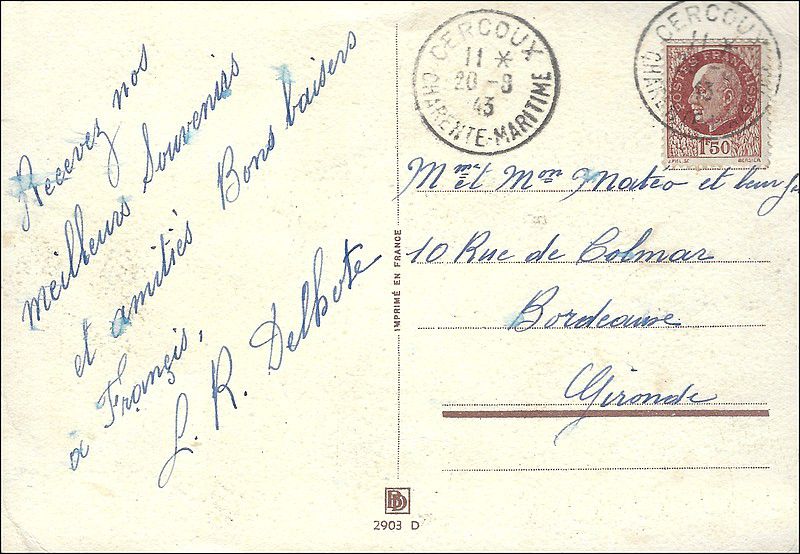 Recevez nos
meilleurs Souvenirs
et amitiés Bons baisers
à Françis,
L. R. Delhote
CERCOUX
11 *
20 -8
43
CHARENTE-MARITIME
CERCOUX
11 *
43
CHARENTE
POSTES FRANÇAISES
1F50
BERSIER
Mme et Mon Matéo et leur
10 Rue de Colmar
Bordeaux
Gironde
IMPRIMÉ EN FRANCE
2903 D